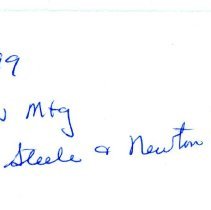 99
Mtg
Steele & Newton